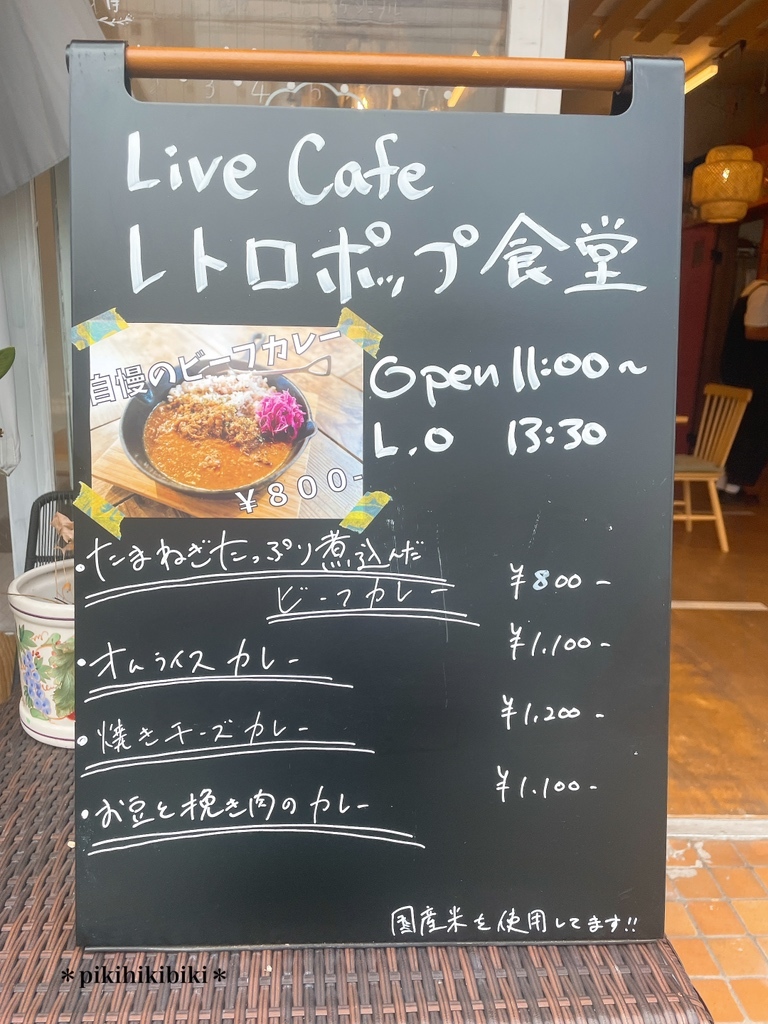 Live Cafe
レトロポップ食堂
自慢のビーフカレー
¥800-
Open 11:00～
L.O 13:30
・たまねぎたっぷり煮込んだ
ビーフカレー ¥800-
・オムライスカレー ¥1.100-
・焼きチーズカレー ¥1.200-
・お豆と挽き肉のカレー ¥1.100-
国産米を使用してます!!
＊pikihikibiki＊